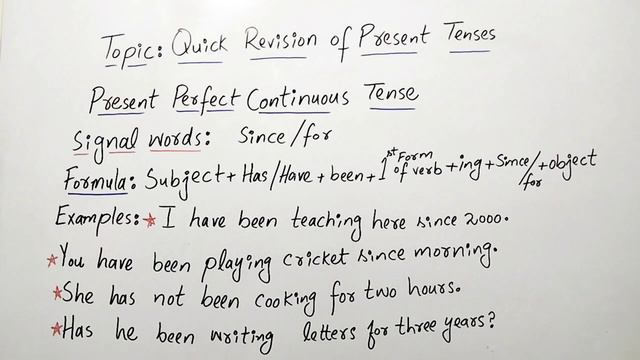 Topic: Quick Revision of Present Tenses
Present Perfect Continuous Tense
Signal words: Since/for
Formula: Subject + Has/Have + been + 1st Form of verb + ing + Since/for + object
Examples: ★ I have been teaching here since 2000.
★ You have been playing cricket since morning.
★ She has not been cooking for two hours.
★ Has he been writing letters for three years?